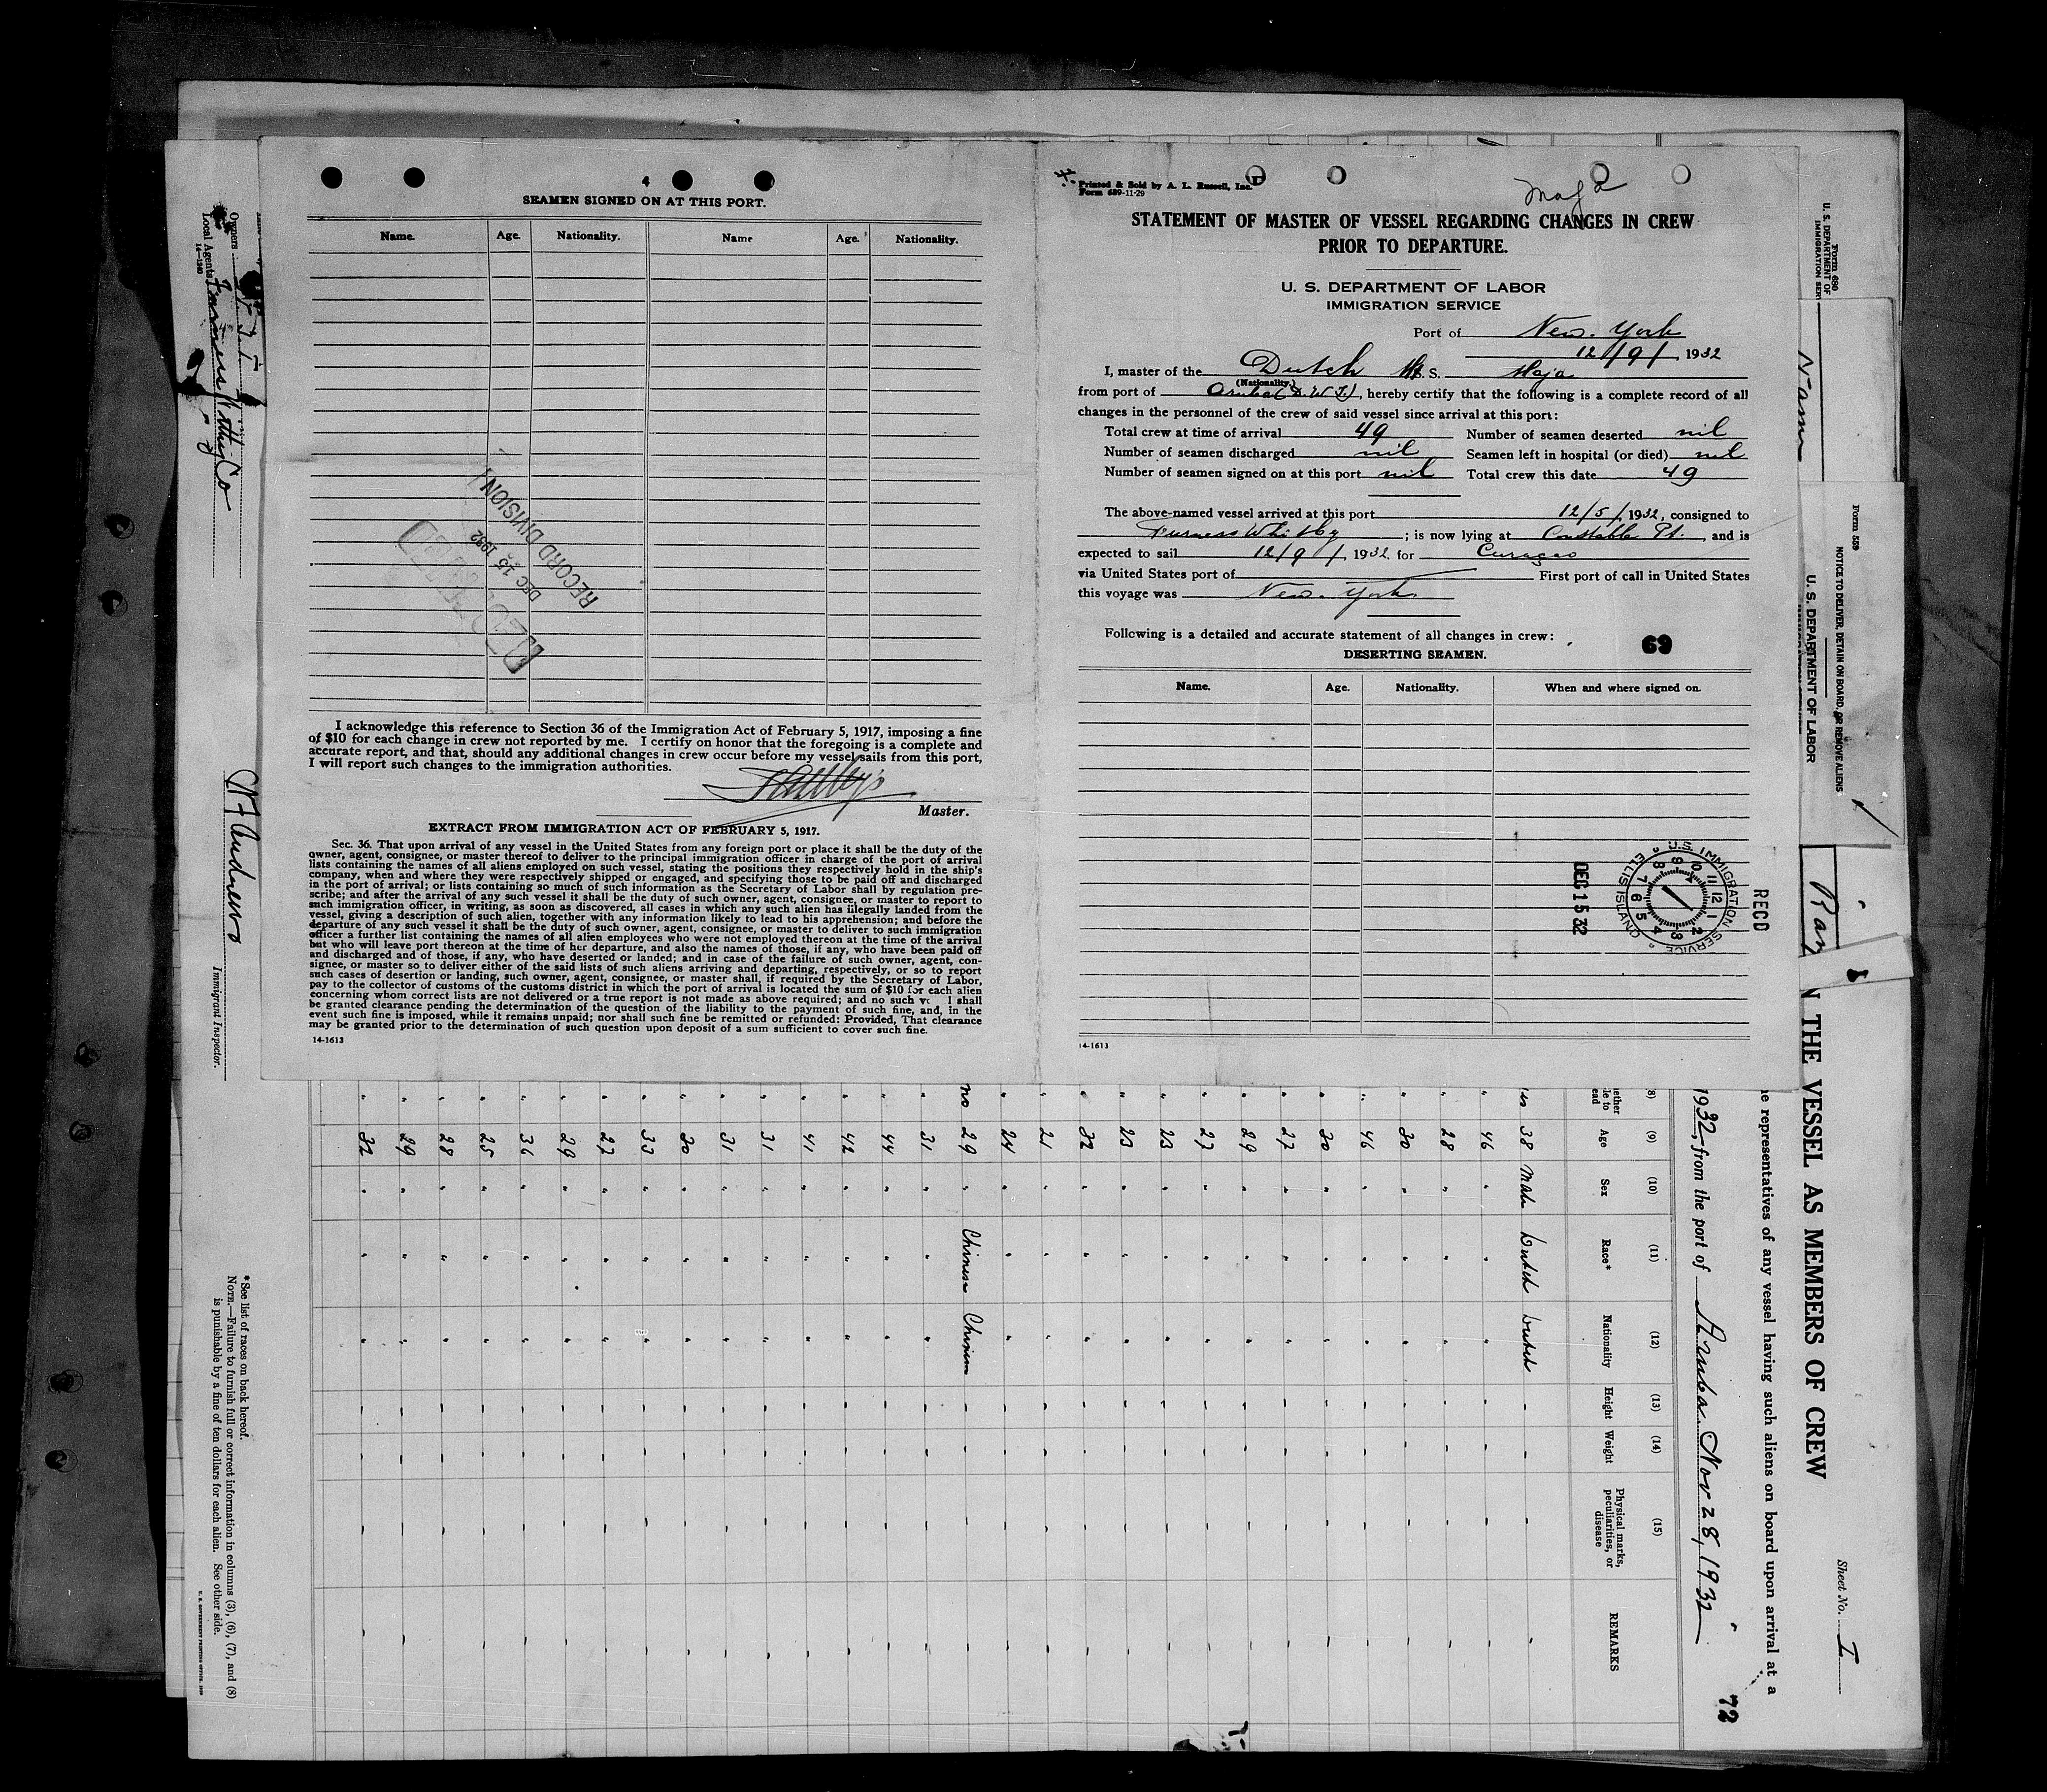 4
SEAMEN SIGNED ON AT THIS PORT.
Name. Age. Nationality. Name Age. Nationality.
RECORD DIVISION
DEC 15 1932
I acknowledge this reference to Section 36 of the Immigration Act of February 5, 1917, imposing a fine
of $10 for each change in crew not reported by me. I certify on honor that the foregoing is a complete and
accurate report, and that, should any additional changes in crew occur before my vessel sails from this port,
I will report such changes to the immigration authorities.
Master.
EXTRACT FROM IMMIGRATION ACT OF FEBRUARY 5, 1917.
Sec. 36. That upon arrival of any vessel in the United States from any foreign port or place it shall be the duty of the
owner, agent, consignee, or master thereof to deliver to the principal immigration officer in charge of the port of arrival
lists containing the names of all aliens employed on such vessel, stating the positions they respectively hold in the ship's
company, when and where they were respectively shipped or engaged, and specifying those to be paid off and discharged
in the port of arrival; or lists containing so much of such information as the Secretary of Labor shall by regulation pre-
scribe; and after the arrival of any such vessel it shall be the duty of such owner, agent, consignee, or master to report to
such immigration officer, in writing, as soon as discovered, all cases in which any such alien has illegally landed from the
vessel, giving a description of such alien, together with any information likely to lead to his apprehension; and before the
departure of any such vessel it shall be the duty of such owner, agent, consignee, or master to deliver to such immigration
officer a further list containing the names of all alien employees who were not employed thereon at the time of the arrival
but who will leave port thereon at the time of her departure, and also the names of those, if any, who have been paid off
and discharged and of those, if any, who have deserted or landed; and in case of the failure of such owner, agent, con-
signee, or master so to deliver either of the said lists of such aliens arriving and departing, respectively, or so to report
such cases of desertion or landing, such owner, agent, consignee, or master shall, if required by the Secretary of Labor,
pay to the collector of customs of the customs district in which the port of arrival is located the sum of $10 for each alien
concerning whom correct lists are not delivered or a true report is not made as above required; and no such ve l shall
be granted clearance pending the determination of the question of the liability to the payment of such fine, and, in the
event such fine is imposed, while it remains unpaid; nor shall such fine be remitted or refunded: Provided, That clearance
may be granted prior to the determination of such question upon deposit of a sum sufficient to cover such fine.
14-1613
Printed & Sold by A. L. Russell, Inc.
Form 689-11-29
Maja
STATEMENT OF MASTER OF VESSEL REGARDING CHANGES IN CREW
PRIOR TO DEPARTURE.
U. S. DEPARTMENT OF LABOR
IMMIGRATION SERVICE
Port of New York
12/9/ 1932
I, master of the Dutch M.S. Maja
(Nationality.)
from port of Aruba (D.W.I.), hereby certify that the following is a complete record of all
changes in the personnel of the crew of said vessel since arrival at this port:
Total crew at time of arrival 49 Number of seamen deserted nil
Number of seamen discharged nil Seamen left in hospital (or died) nil
Number of seamen signed on at this port nil Total crew this date 49
The above-named vessel arrived at this port 12/5/1932, consigned to
Furness Whitby; is now lying at Constable Pt., and is
expected to sail 12/9/, 1932 for Curaçao
via United States port of First port of call in United States
this voyage was New York
Following is a detailed and accurate statement of all changes in crew:
69
DESERTING SEAMEN.
Name. Age. Nationality. When and where signed on.
RECD
U.S. IMMIGRATION SERVICE ELLIS ISLAND
12 1 2 3 4 5 6 7 8 9 10 11
DEC 15 32
14-1613
Owners
Local Agents Furness Withy Co
14-1340
Immigrant Inspector.
*See list of races on back hereof.
NOTE.—Failure to furnish full or correct information in columns (3), (6), (7), and (8)
is punishable by a fine of ten dollars for each alien. See other side.
U. S. GOVERNMENT PRINTING OFFICE
Form 680
U. S. DEPARTMENT OF
IMMIGRATION SER
Form 559
NOTICE TO DELIVER, DETAIN ON BOARD, OR REMOVE ALIENS
U. S. DEPARTMENT OF LABOR
THE VESSEL AS MEMBERS OF CREW
Sheet No. I
e representatives of any vessel having such aliens on board upon arrival at a
1932, from the port of Aruba Nov 28, 1932
72
(8) (9) (10) (11) (12) (13) (14) (15)
Age Sex Race* Nationality Height Weight Physical marks, peculiarities, or disease REMARKS
38 Male Dutch Dutch - - - -
46 " " "
28 " " "
30 " " "
46 " " "
30 " " "
27 " " "
29 " " "
27 " " "
23 " " "
23 " " "
32 " " "
21 " " "
24 " " "
no 29 " Chinese Chinese
" 31 " " "
" 44 " " "
" 42 " " "
" 41 " " "
" 31 " " "
" 31 " " "
" 30 " " "
" 33 " " "
" 27 " " "
" 29 " " "
" 36 " " "
" 25 " " "
" 28 " " "
" 29 " " "
" 32 " " "